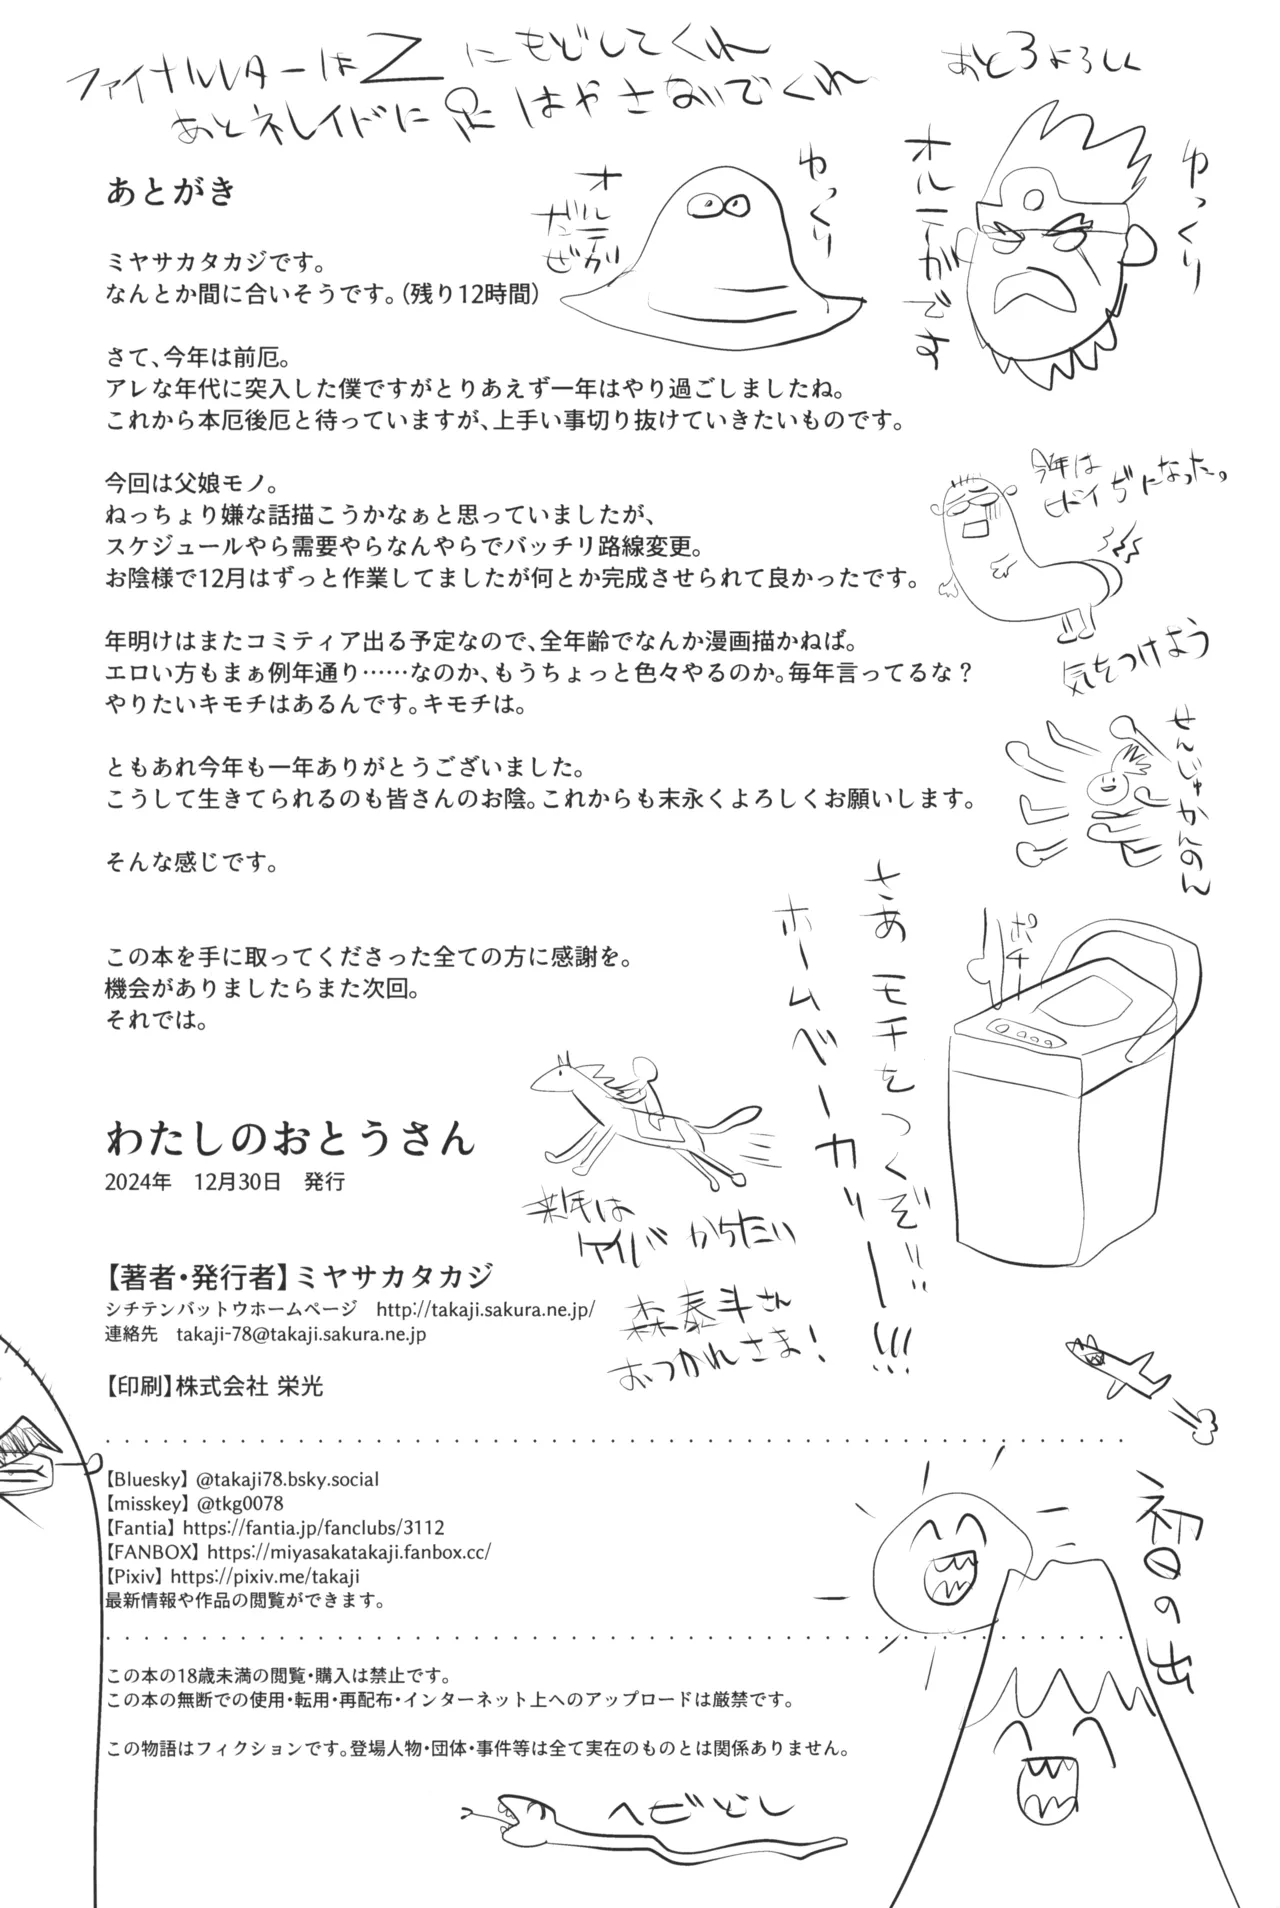 ファイナルレターはZにもどしてくれ
あとネレイドに足はやさないでくれ
あと3よろしく
ゆっくり
オルテガです
ゆっくり
オルテガ
だぜ
あとがき
ミヤサカタカジです。
なんとか間に合いそうです。（残り12時間）
さて、今年は前厄。
アレな年代に突入した僕ですがとりあえず一年はやり過ごしましたね。
これから本厄後厄と待っていますが、上手い事切り抜けていきたいものです。
今回は父娘モノ。
ねっちょり嫌な話描こうかなぁと思っていましたが、
スケジュールやら需要やらなんやらでバッチリ路線変更。
お陰様で12月はずっと作業してましたが何とか完成させられて良かったです。
今年は
ヒドイぢになった。
気をつけよう
年明けはまたコミティア出る予定なので、全年齢でなんか漫画描かねば。
エロい方もまぁ例年通り……なのか、もうちょっと色々やるのか。毎年言ってるな？
やりたいキモチはあるんです。キモチは。
せんじゅかんのん
ともあれ今年も一年ありがとうございました。
こうして生きてられるのも皆さんのお陰。これからも末永くよろしくお願いします。
そんな感じです。
さあモチをつくぞ!!
ホームベーカリー!!!
ポチー
この本を手に取ってくださった全ての方に感謝を。
機会がありましたらまた次回。
それでは。
わたしのおとうさん
2024年　12月30日　発行
来年は
ケイバからたい
森泰斗さん
おつかれさま！
【著者・発行者】ミヤサカタカジ
シチテンバットウホームページ　http://takaji.sakura.ne.jp/
連絡先　takaji-78@takaji.sakura.ne.jp
【印刷】株式会社 栄光
【Bluesky】 @takaji78.bsky.social
【misskey】 @tkg0078
【Fantia】 https://fantia.jp/fanclubs/3112
【FANBOX】 https://miyasakatakaji.fanbox.cc/
【Pixiv】 https://pixiv.me/takaji
最新情報や作品の閲覧ができます。
初日の出
この本の18歳未満の閲覧・購入は禁止です。
この本の無断での使用・転用・再配布・インターネット上へのアップロードは厳禁です。
この物語はフィクションです。登場人物・団体・事件等は全て実在のものとは関係ありません。
ヘビどし